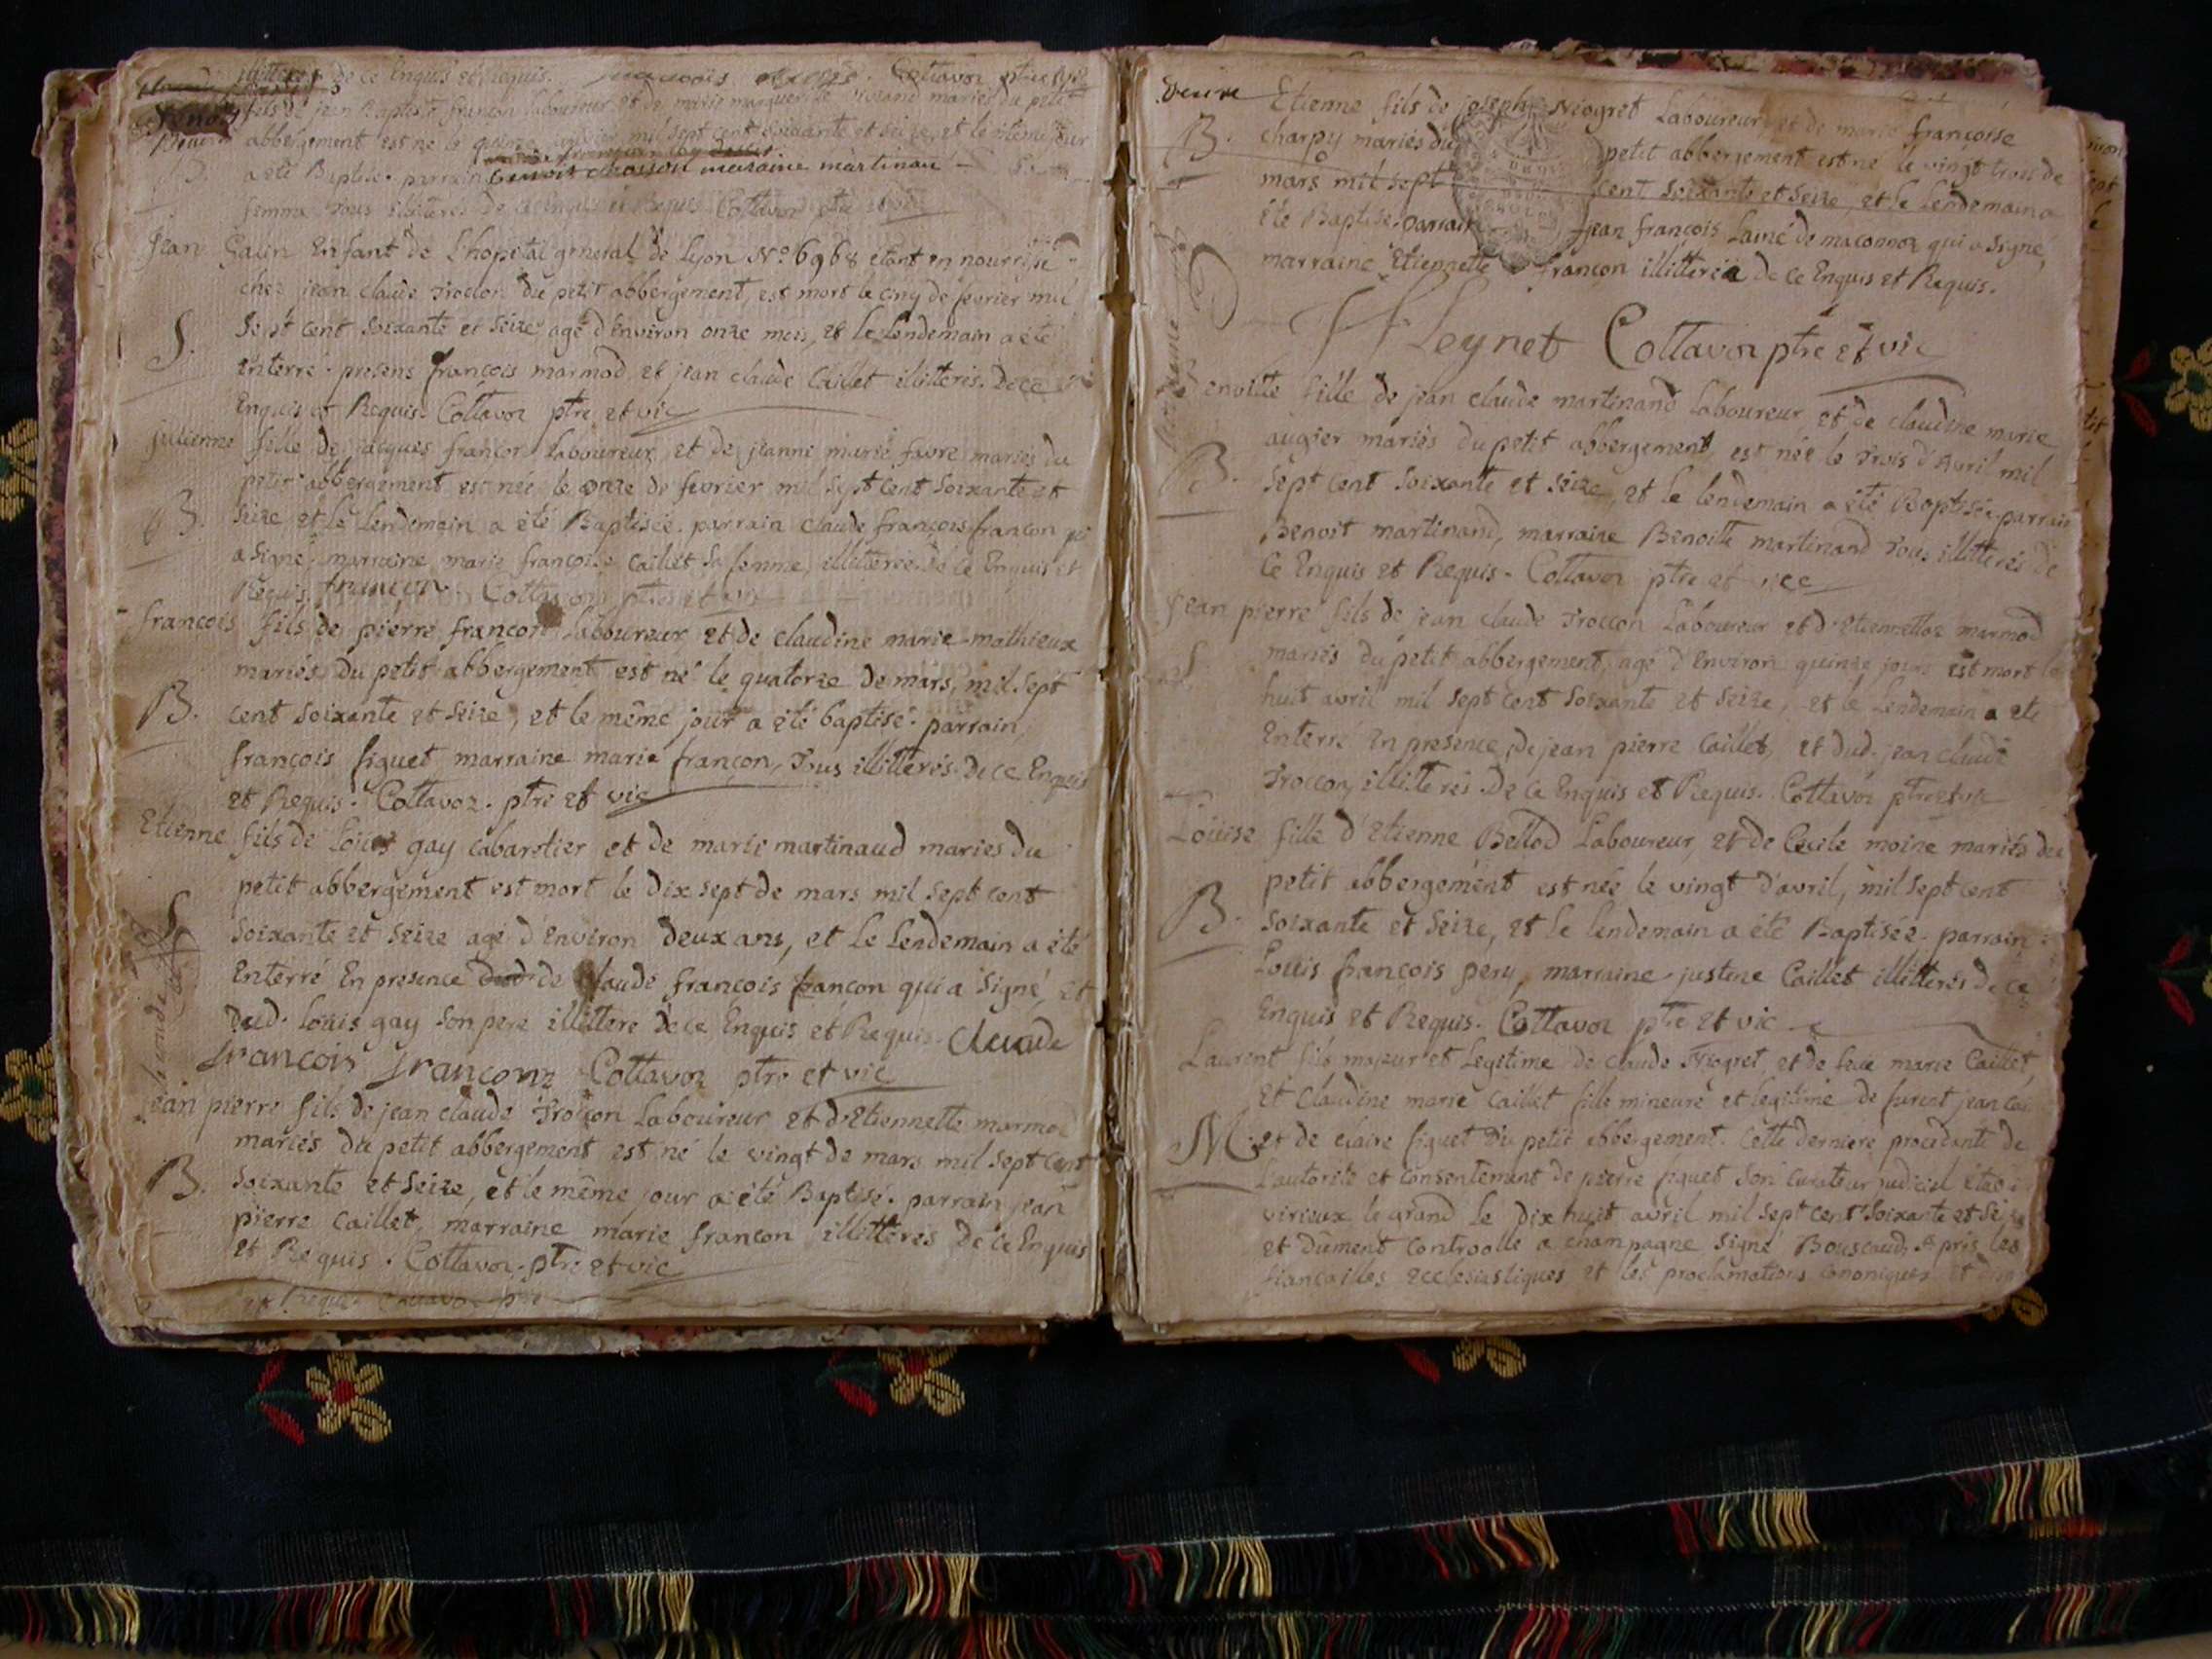 illitérés de ce Enquis et Requis. Cottavoz ptre et vic
fils de jean Baptiste françon Laboureur et de marie marguerite mariés du petit
abbergement est né le mil sept cent soixante et seize, et le même jour
a été Baptisé. parrain Benoit marraine martinan
femme Tous illitérés de ce Enquis et Requis Cottavoz ptre et vic
Jean Galin Enfant de L'hopital general de Lyon N.o 6968 étant en nourrisse
chez jean claude Troccon du petit abbergement, est mort le cinq de fevrier mil
S. Sept cent soixante et seize agé d'Environ onze mois, et le lendemain a été
Enterré. presens françois marmod et jean claude Caillet illitérés. de ce
Enquis et Requis. Cottavoz ptre et vic
julienne fille de jacques françon Laboureur et de jeanne marie favre mariés du
petit abbergement est née le onze de fevrier mil sept cent soixante et
B. Seize et le lendemain a été Baptisée. parrain claude françois françon qui
a signé. marraine marie françoise Caillet sa femme, illitérée de ce Enquis et
Requis françon. Cottavoz ptre et vic
françois fils de pierre françon Laboureur et de claudine marie mathieux
mariés du petit abbergement est né le quatorze de mars, mil sept
B. cent soixante et seize, et le même jour a été baptisé. parrain,
françois figuet marraine marie françon, Tous illitérés de ce Enquis
et Requis. Cottavoz. ptre et vic
Etienne fils de Loüis gay Cabaretier et de marie martinaud mariés du
petit abbergement est mort le dix sept de mars mil sept cent
S. Soixante et seize agé d'Environ deux ans, et Le Lendemain a été
Enterré En presence de claude françois françon qui a signé, et
dud. Loüis gay son pere illittére de ce Enquis et Requis. Claude
françois françonz Cottavoz ptre et vic
jean pierre fils de jean claude Troccon Laboureur et d'Etiennette marmod
mariés du petit abbergement est né le vingt de mars mil sept cent
B. Soixante et Seize, et le même jour a été Baptisé. parrain jean
pierre Caillet, marraine marie françon illittérés de ce Enquis
et Requis. Cottavoz. ptre et vic
Etienne fils de joseph Niogret Laboureur et de marie françoise
B. charpy mariés du petit abbergement est né le vingt trois de
mars mil sept cent soixante et seize, et le lendemain a
été Baptisé. parrain jean françois Lainé de maconnoz qui a signé,
marraine Etiennette françon illittérée de ce Enquis et Requis.
Leynet Cottavoz ptre et vic
Benoitte fille de jean claude martinand Laboureur, et de claudine marie
augier mariés du petit abbergement, est née le trois d'avril mil
B. Sept cent soixante et seize, et le lendemain a été Baptisée parrain
Benoit martinand, marraine Benoitte martinand Tous illittérés de
Ce Enquis et Requis. Cottavoz ptre et vic
Jean pierre fils de jean claude Troccon Laboureur et d'Etiennettaz marmod
S. mariés du petit abbergement, agé d'Environ quinze jours est mort le
huit avril mil sept cent soixante et seize, et le Lendemain a été
Enterré En presence, de jean pierre Caillet, et dud. jean claude
Troccon, illittérés De Ce Enquis et Requis. Cottavoz ptre et vic
Loüise fille d'Etienne Bellod Laboureur, et de Cecile moine mariés du
petit abbergement est née le vingt d'avril, mil sept cent
B. Soixante et Seize, et le lendemain a été Baptisée. parrain
Loüis françois pery, marraine justine Caillet illittérés de ce
Enquis et Requis. Cottavoz ptre et vic
Laurent fils majeur et Legitime de claude Niogret, et de feue marie Caillet,
et Claudine marie Caillet fille mineure et legitime de furent jean
M. et de claire figuet du petit abbergement. Cette derniere procedante de
L'autorité et consentement de pierre figuet son curateur judiciel
virieux le grand le dix huit avril mil sept cent soixante et seize
et düment controolle a champagne signé apris les
fiançailles Ecclesiastiques et les proclamations canoniques et